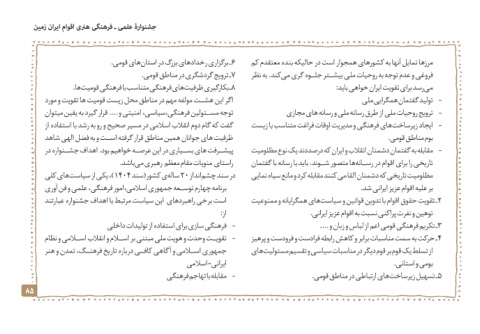 جشنواره علمی ـ فرهنگی هنری اقوام ایران زمین
مرزها تمایل آنها به کشورهای همجوار است در حالیکه بنده معتقدم کم
فروغی و عدم توجه به روحیات ملی بیشتر جلوه گری می‌کند. به نظر
می‌رسد برای تقویت ایران خواهی باید:
- تولید گفتمان همگرایی ملی
- ترویج روحیات ملی از طرق رسانه ملی و رسانه های مجازی
- ایجاد زیرساخت‌های فرهنگی و مدیریت اوقات فراغت متناسب با زیست
بوم مناطق قومی.
- مقابله به گفتمان دشمنان انقلاب و ایران که درصددند یک نوع مظلومیت
تاریخی را برای اقوام در رسانه‌ها متصور شوند. باید با رسانه با گفتمان
مظلومیت تاریخی که دشمنان القا می کنند مقابله کرد و مانع سیاه نمایی
بر علیه اقوام عزیز ایرانی شد.
۲.تقویت حقوق اقوام با تدوین قوانین و سیاست‌های همگرایانه و ممنوعیت
توهین و نفرت پراکنی نسبت به اقوام عزیز ایرانی.
۳.تکریم فرهنگی قومی اعم از لباس و زبان و ....
۴.حرکت به سمت مناسبات برابر و کاهش رابطه فرادست و فرودست و پرهیز
از تسلط یک قوم بر قوم دیگر در مناسبات سیاسی و تقسیم مسئولیت‌های
بومی و استانی.
۵.تسهیل زیرساخت‌های ارتباطی در مناطق قومی.
۶.برگزاری رخدادهای بزرگ در استان‌های قومی.
۷.ترویج گردشگری در مناطق قومی.
۸.بکارگیری ظرفیت‌های فرهنگی متناسب با فرهنگی قومیت‌ها.
اگر این هشت مولفه مهم در مناطق محل زیست قومیت ها تقویت و مورد
توجه مسئولین فرهنگی،سیاسی، امنیتی و .... قرار گیرد به یقین میتوان
گفت که گام دوم انقلاب اسلامی در مسیر صحیح و رو به رشد با استفاده از
ظرفیت های جوانان همین مناطق قرار گرفته است و به فضل الهی شاهد
پیشرفت های بسیاری در این عرصه خواهیم بود. اهداف جشنواره در
راستای منویات مقام معظم رهبری می‌باشد.
در سند چشم‌انداز ۲۰ ساله‌ی کشور (سند ۱۴۰۴)، یکی از سیاست‌های کلی
برنامه چهارم توسعه جمهوری اسلامی،امور فرهنگی، علمی و فن آوری
است برخی راهبردهای این سیاست مرتبط با اهداف جشنواره عبارتند
از:
- فرهنگی سازی برای استفاده از تولیدات داخلی
- تقویت وحدت و هویت ملی مبتنی بر اسلام و انقلاب اسلامی و نظام
جمهوری اسلامی و آگاهی کافی درباره تاریخ فرهنگ، تمدن و هنر
ایرانی-اسلامی
- مقابله با تهاجم فرهنگی
۸۵